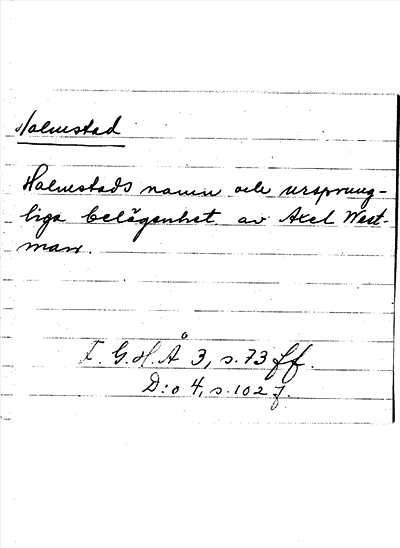 Halmstad
Halmstads namn och ursprung-
liga belägenhet av Axel West-
man.
F. G. H. Å 3, s. 73 ff.
D:o 4, s. 102 f.